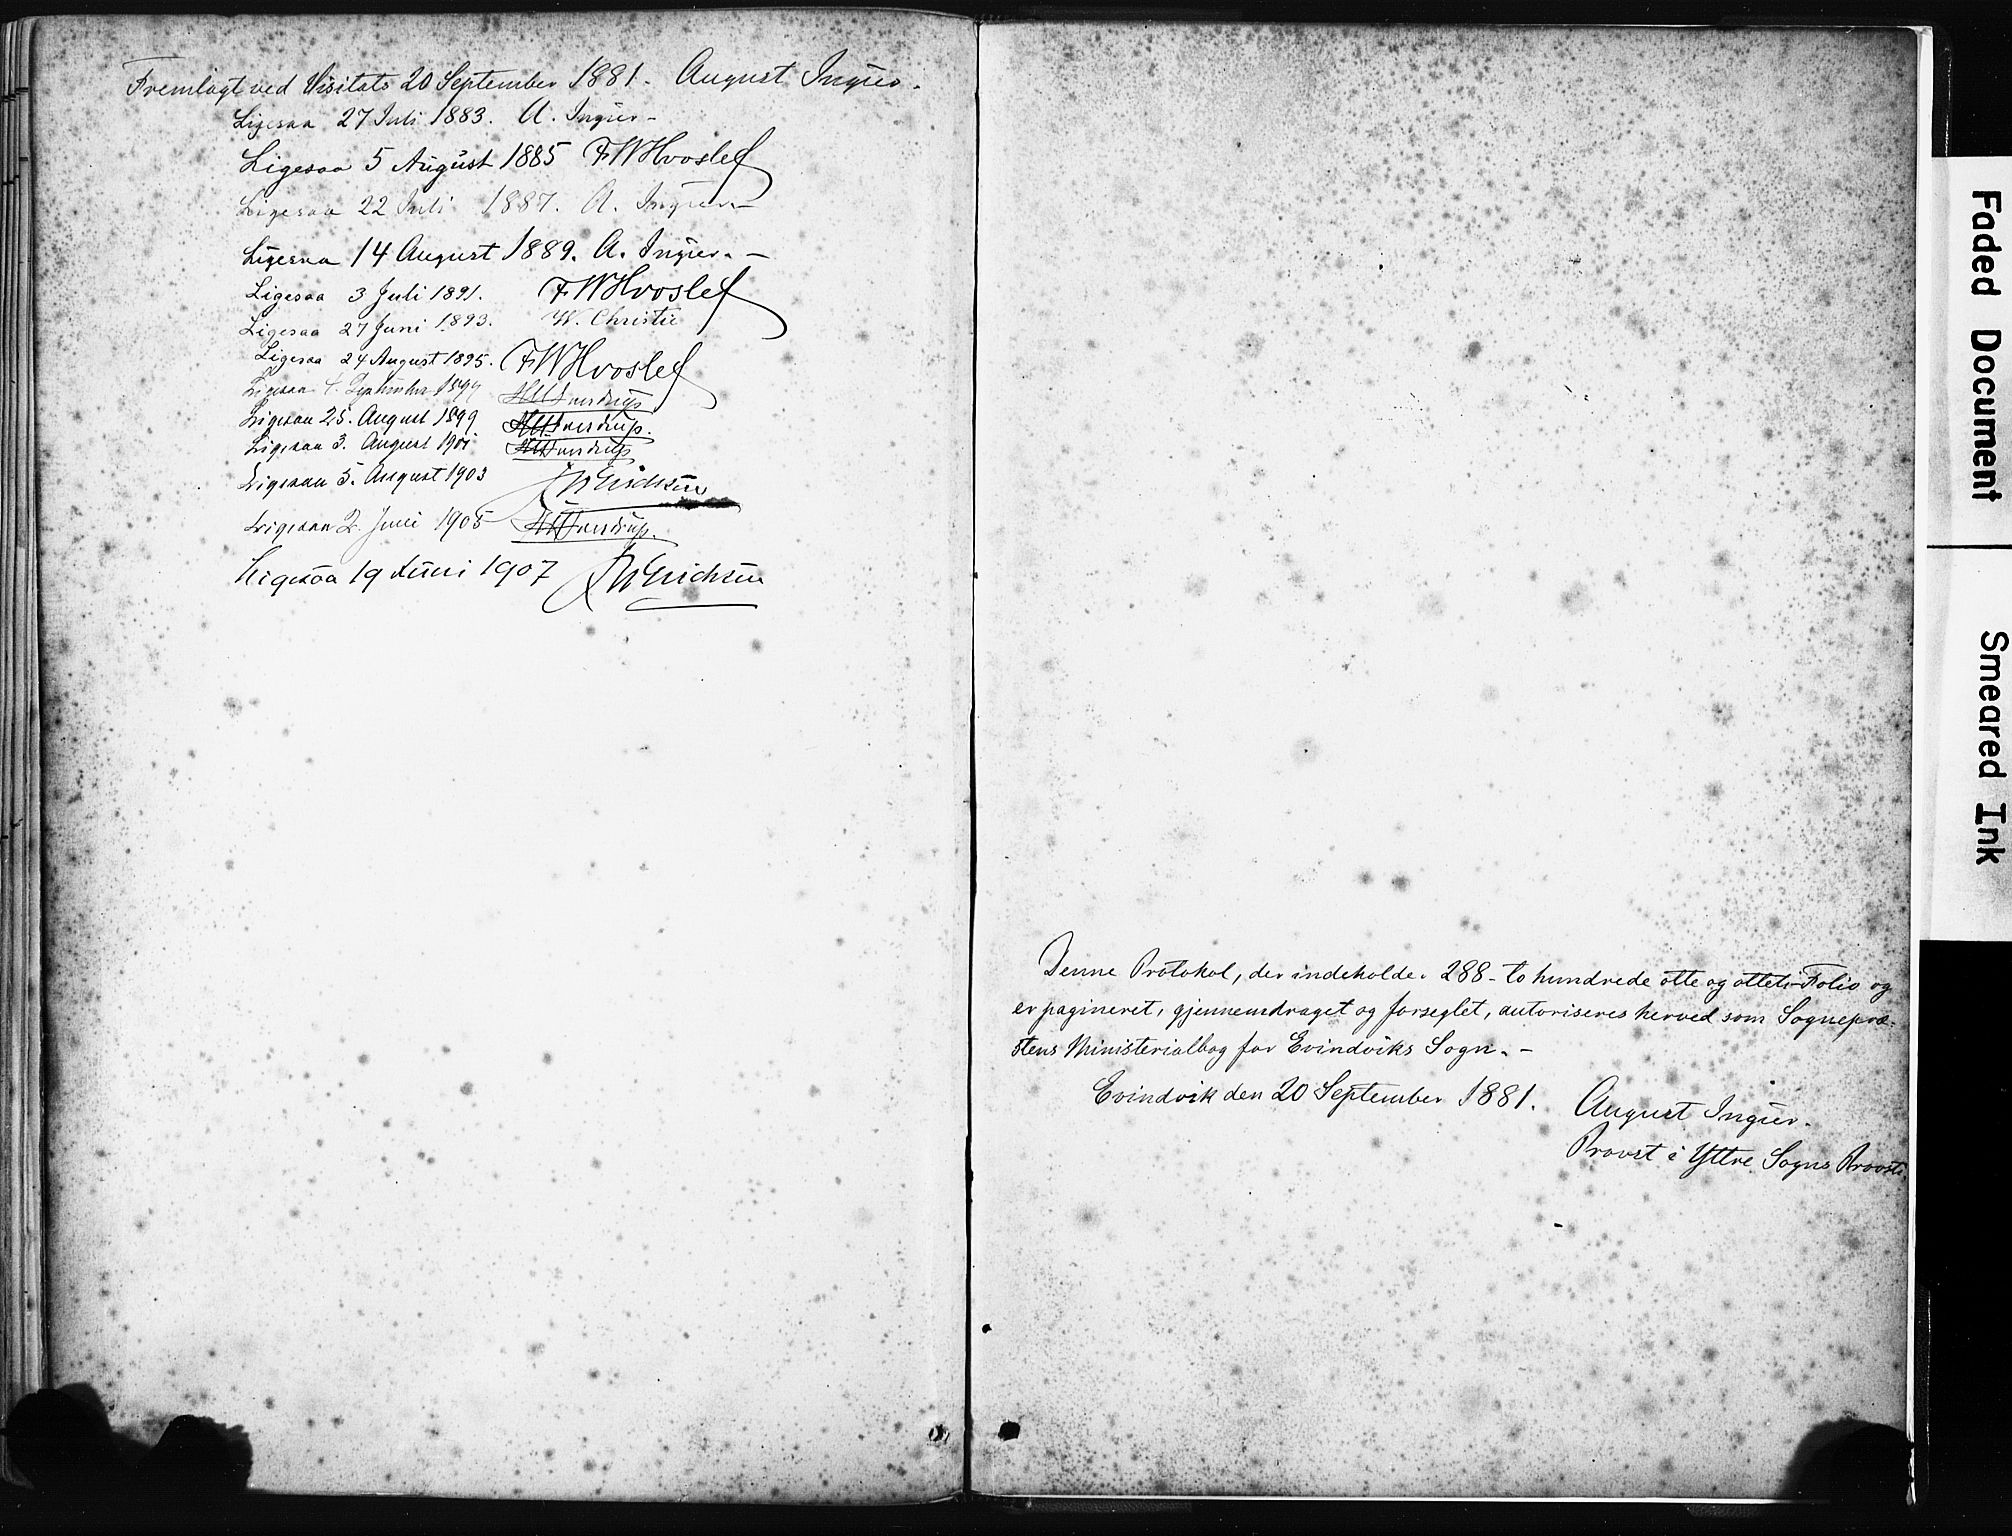 Fremlagt ved Visitats 20 September 1881. August Ingier.
Ligesaa 27 Juli 1883. A. Ingier -
Ligesaa 5 August 1885 FWHvoslef
Ligesaa 22 Juli 1887. A. Ingier. -
Ligesaa 14 August 1889. A. Ingier. -
Ligesaa 3 Juli 1891. FWHvoslef
Ligesaa 27 Juni 1893. W. Christie
Ligesaa 24 August 1895. FWHvoslef
Ligesaa 4. September 1897 Sverdrup
Ligesaa 25. August 1899 Sverdrup.
Ligesaa 3. August 1901 Sverdrup
Ligesaa 5. August 1903 Erichsen
Ligesaa 2. Juni 1905 Sverdrup.
Ligesaa 19 Juni 1907 Erichsen
Denne Protokol, der indeholder 288 - to hundrede otte og otteti - Folio og
er pagineret, gjennemdraget og forseglet, autoriseres herved som Sognepræ-
stens Ministerialbog for Evindviks Sogn. -
Evindvik den 20 September 1881. August Ingier.
Provst i Yttre Sogns Provsti
Faded Document
Smeared Ink